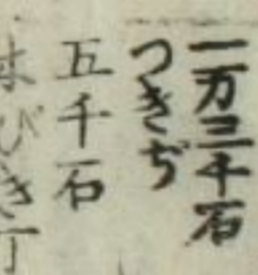 一万三千石
つきぢ
五千石
びき丁